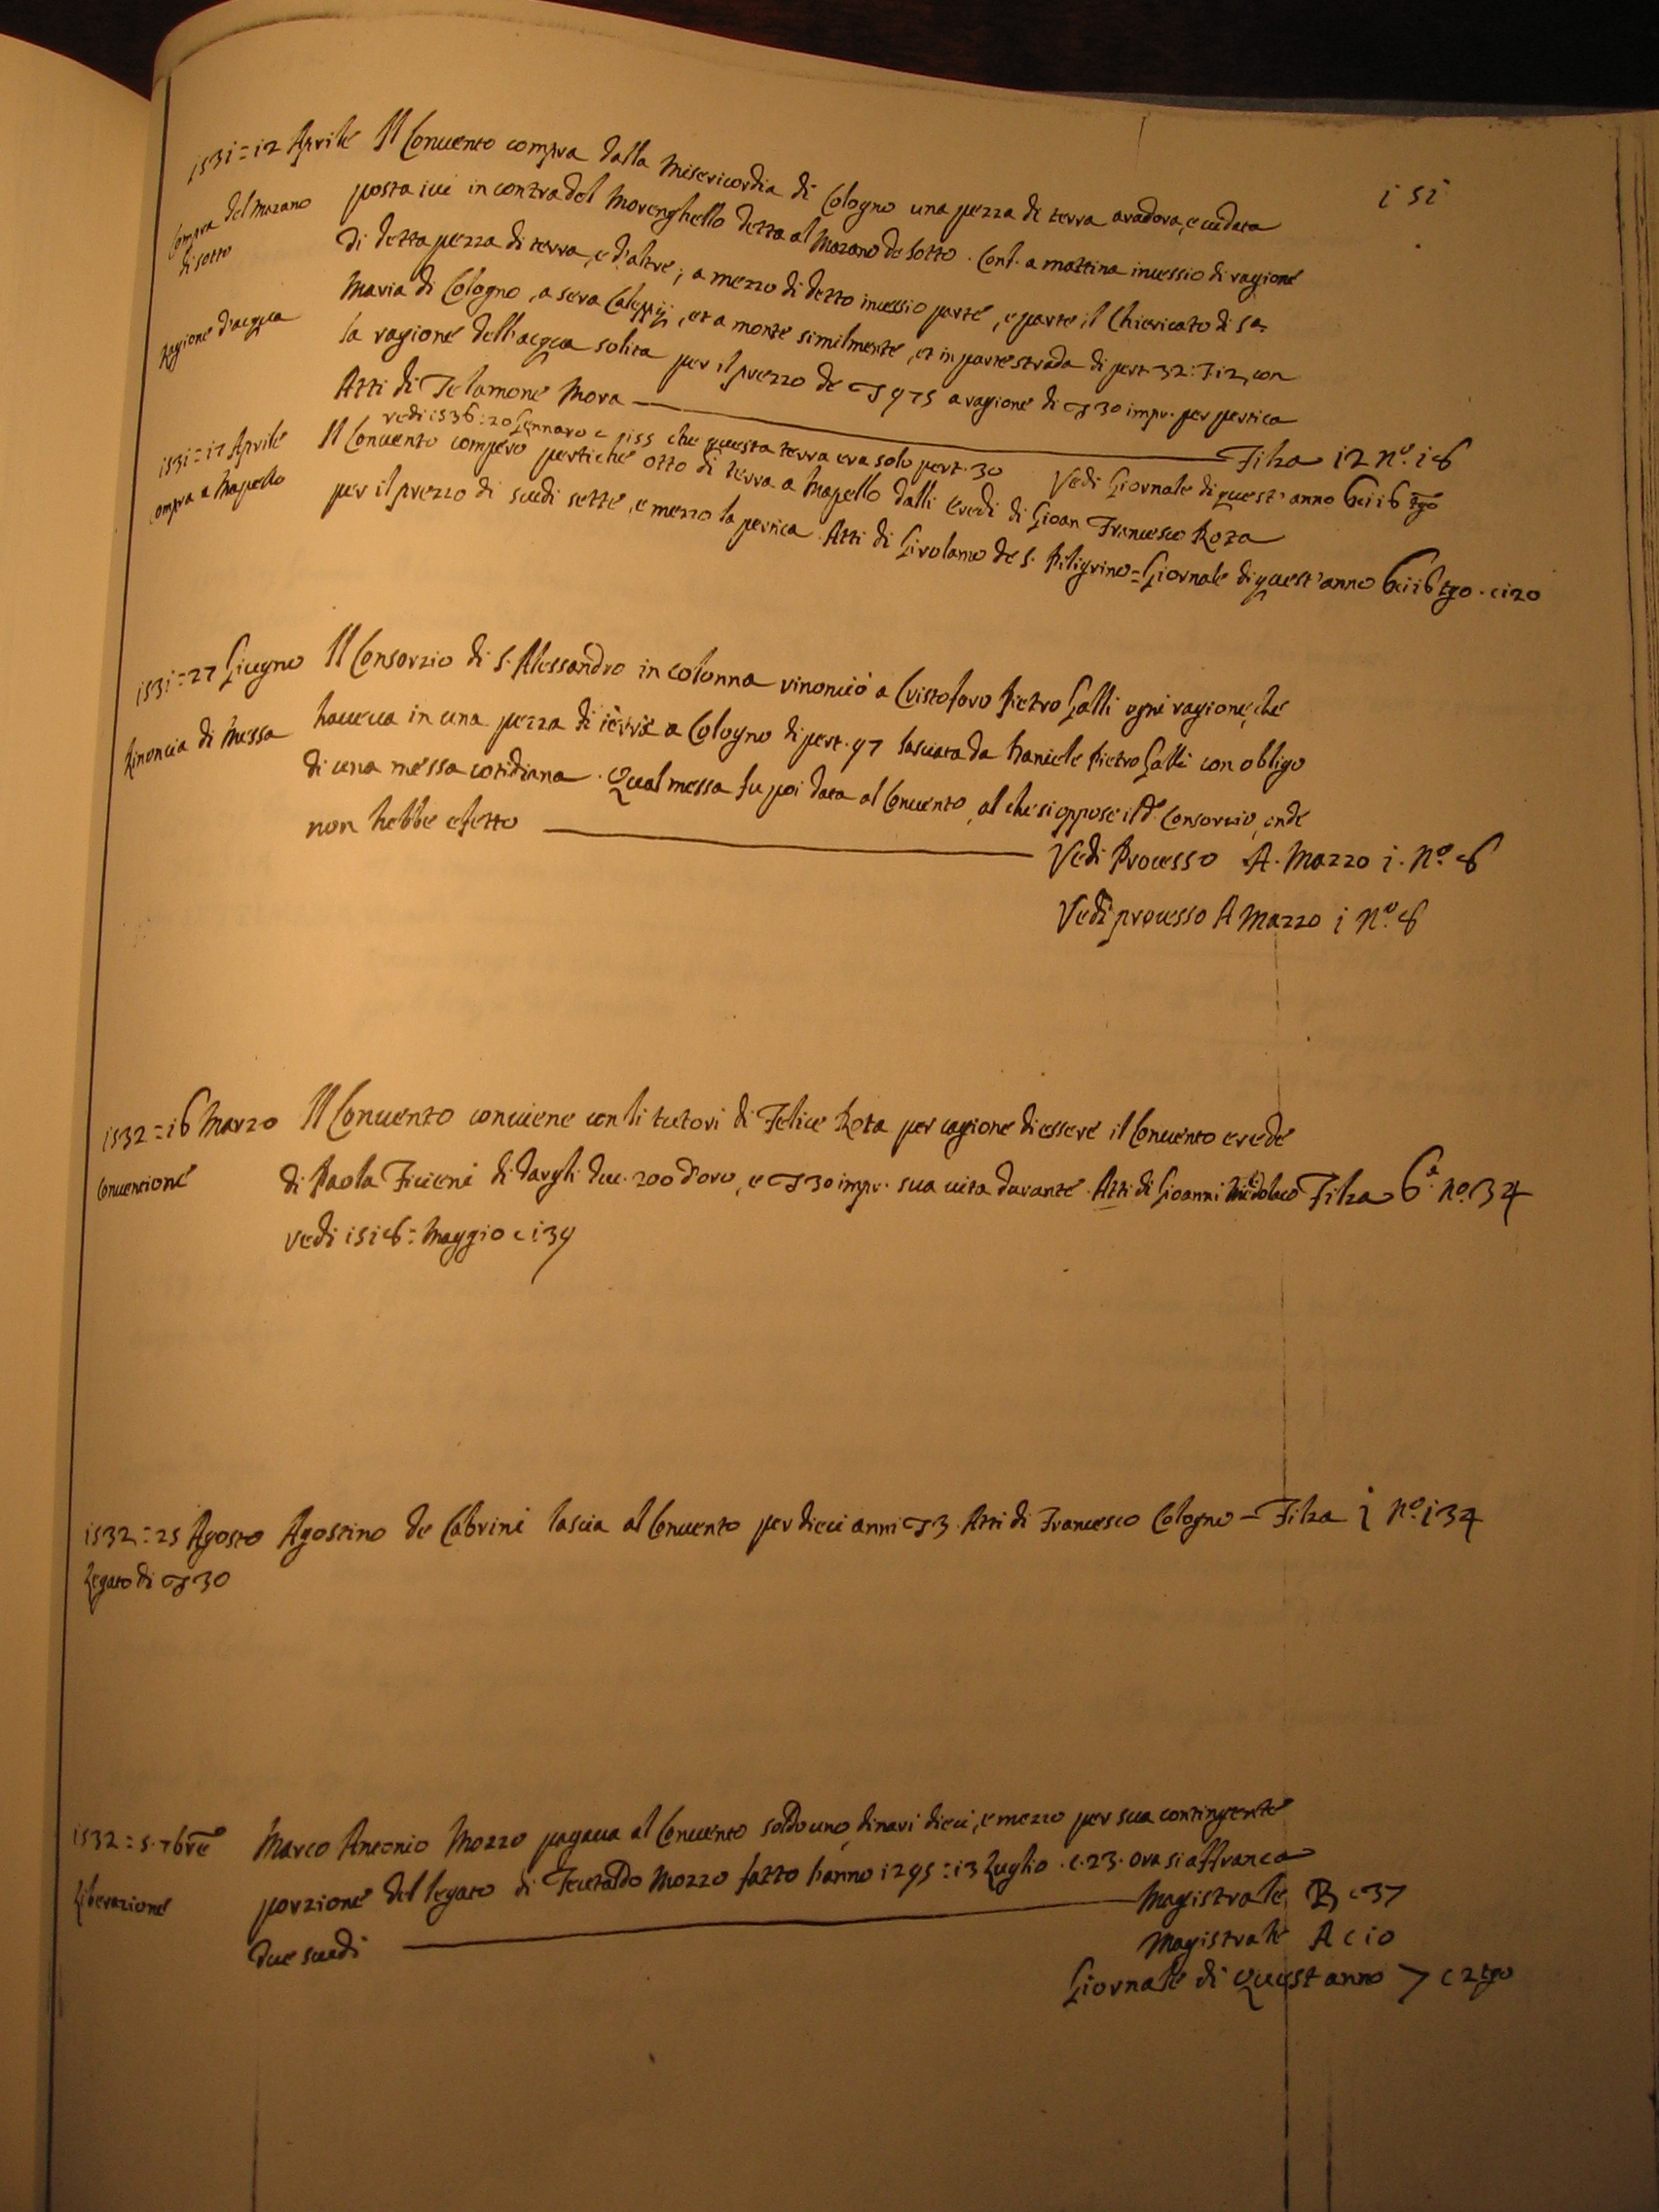 151
1531 = 12 Aprile Il Conuento compra dalla Misericordia di Cologno una pezza di terra aradora, e uidata
Compra del Mozano posta iui in contra del Morenghello detta al Mozano de Sotto. Conf. a mattina incessio di ragione
di sotto di detta pezza di terra, e d'altre; a mezzo di detto incessio parte, e parte il Chiericato di Sa.
Maria di Cologno, a sera Caleppij, et a monte similmente, et in parte strada di pert. 32: 7:12, con
Ragione d'acqua la ragione dell'acqua solita per il prezzo de 975 a ragione di 30 imp. per pertica
Atti di Telamone Mora Filza 12 N.º 18
vedi 1536: 20 Gennaro c 155 che questa terra era solo pert. 30 Vedi Giornale di quest'anno 6 c 116 tgo
1531 = 17 Aprile Il Conuento comperò pertiche otto di terra a Mapello dalli Eredi di Gioan Francesco Rota
Compra a Mapello per il prezzo di scudi sette, e mezzo la pertica. Atti di Girolamo de S. Piligrino = Giornale di quest'anno 6 c 116 tgo. c 120
1531 = 27 Giugno Il Consorzio di S. Alessandro in colonna rinonciò a Cristoforo Pietro Galli ogni ragione, che
Rinoncia di Messa haueua in una pezza di terra a Cologno di pert. 97 lasciata da Daniele Pietro Galli con obligo
di una messa cotidiana. Qual messa fu poi data al Conuento, al che si oppose il d.º Consorzio, onde
non hebbe efetto Vedi Processo A. Mazzo 1. N.º 8
Vedi processo A Mazzo 1 N.º 8
1532 = 16 Marzo Il Conuento conuiene con li tutori di Felice Rota per cagione di essere il Conuento erede
Conuenzione di Paola Ficieni di dargli duc. 200 d'oro, e 30 imp. sua uita durante. Atti di Gioanni Filza 6.ª N.º 34
vedi 1518 = Maggio c 139
1532 = 25 Agosto Agostino de Cabrini lascia al Conuento per dieci anni 3. Atti di Francesco Cologno = Filza 1 N.º 134
Legato di 30
1532 = 5. 7bre Marco Antonio Mozzo pagaua al Conuento soldo uno, dinari dieci, e mezzo per sua contingente
Liberazione porzione del legato di Teutaldo Mozzo fatto l'anno 1295 = 13 Luglio. c. 23. ora si affranca
due scudi Magistrale B c 37
Magistrale A c 10
Giornale di quest anno 7 c 2 tgo